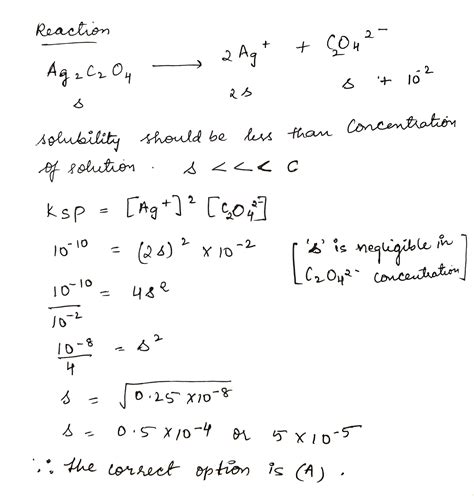 Reaction
Ag₂C₂O₄ ⟶ 2Ag⁺ + C₂O₄²⁻
s 2s s + 10⁻²
solubility should be less than Concentration
of solution. s <<< C
Ksp = [Ag⁺]² [C₂O₄²⁻]
10⁻¹⁰ = (2s)² × 10⁻²
['s' is negligible in
C₂O₄²⁻ concentration]
10⁻¹⁰/10⁻² = 4s²
10⁻⁸/4 = s²
s = √0.25 × 10⁻⁸
s = 0.5 × 10⁻⁴ or 5 × 10⁻⁵
∵ the correct option is (A).